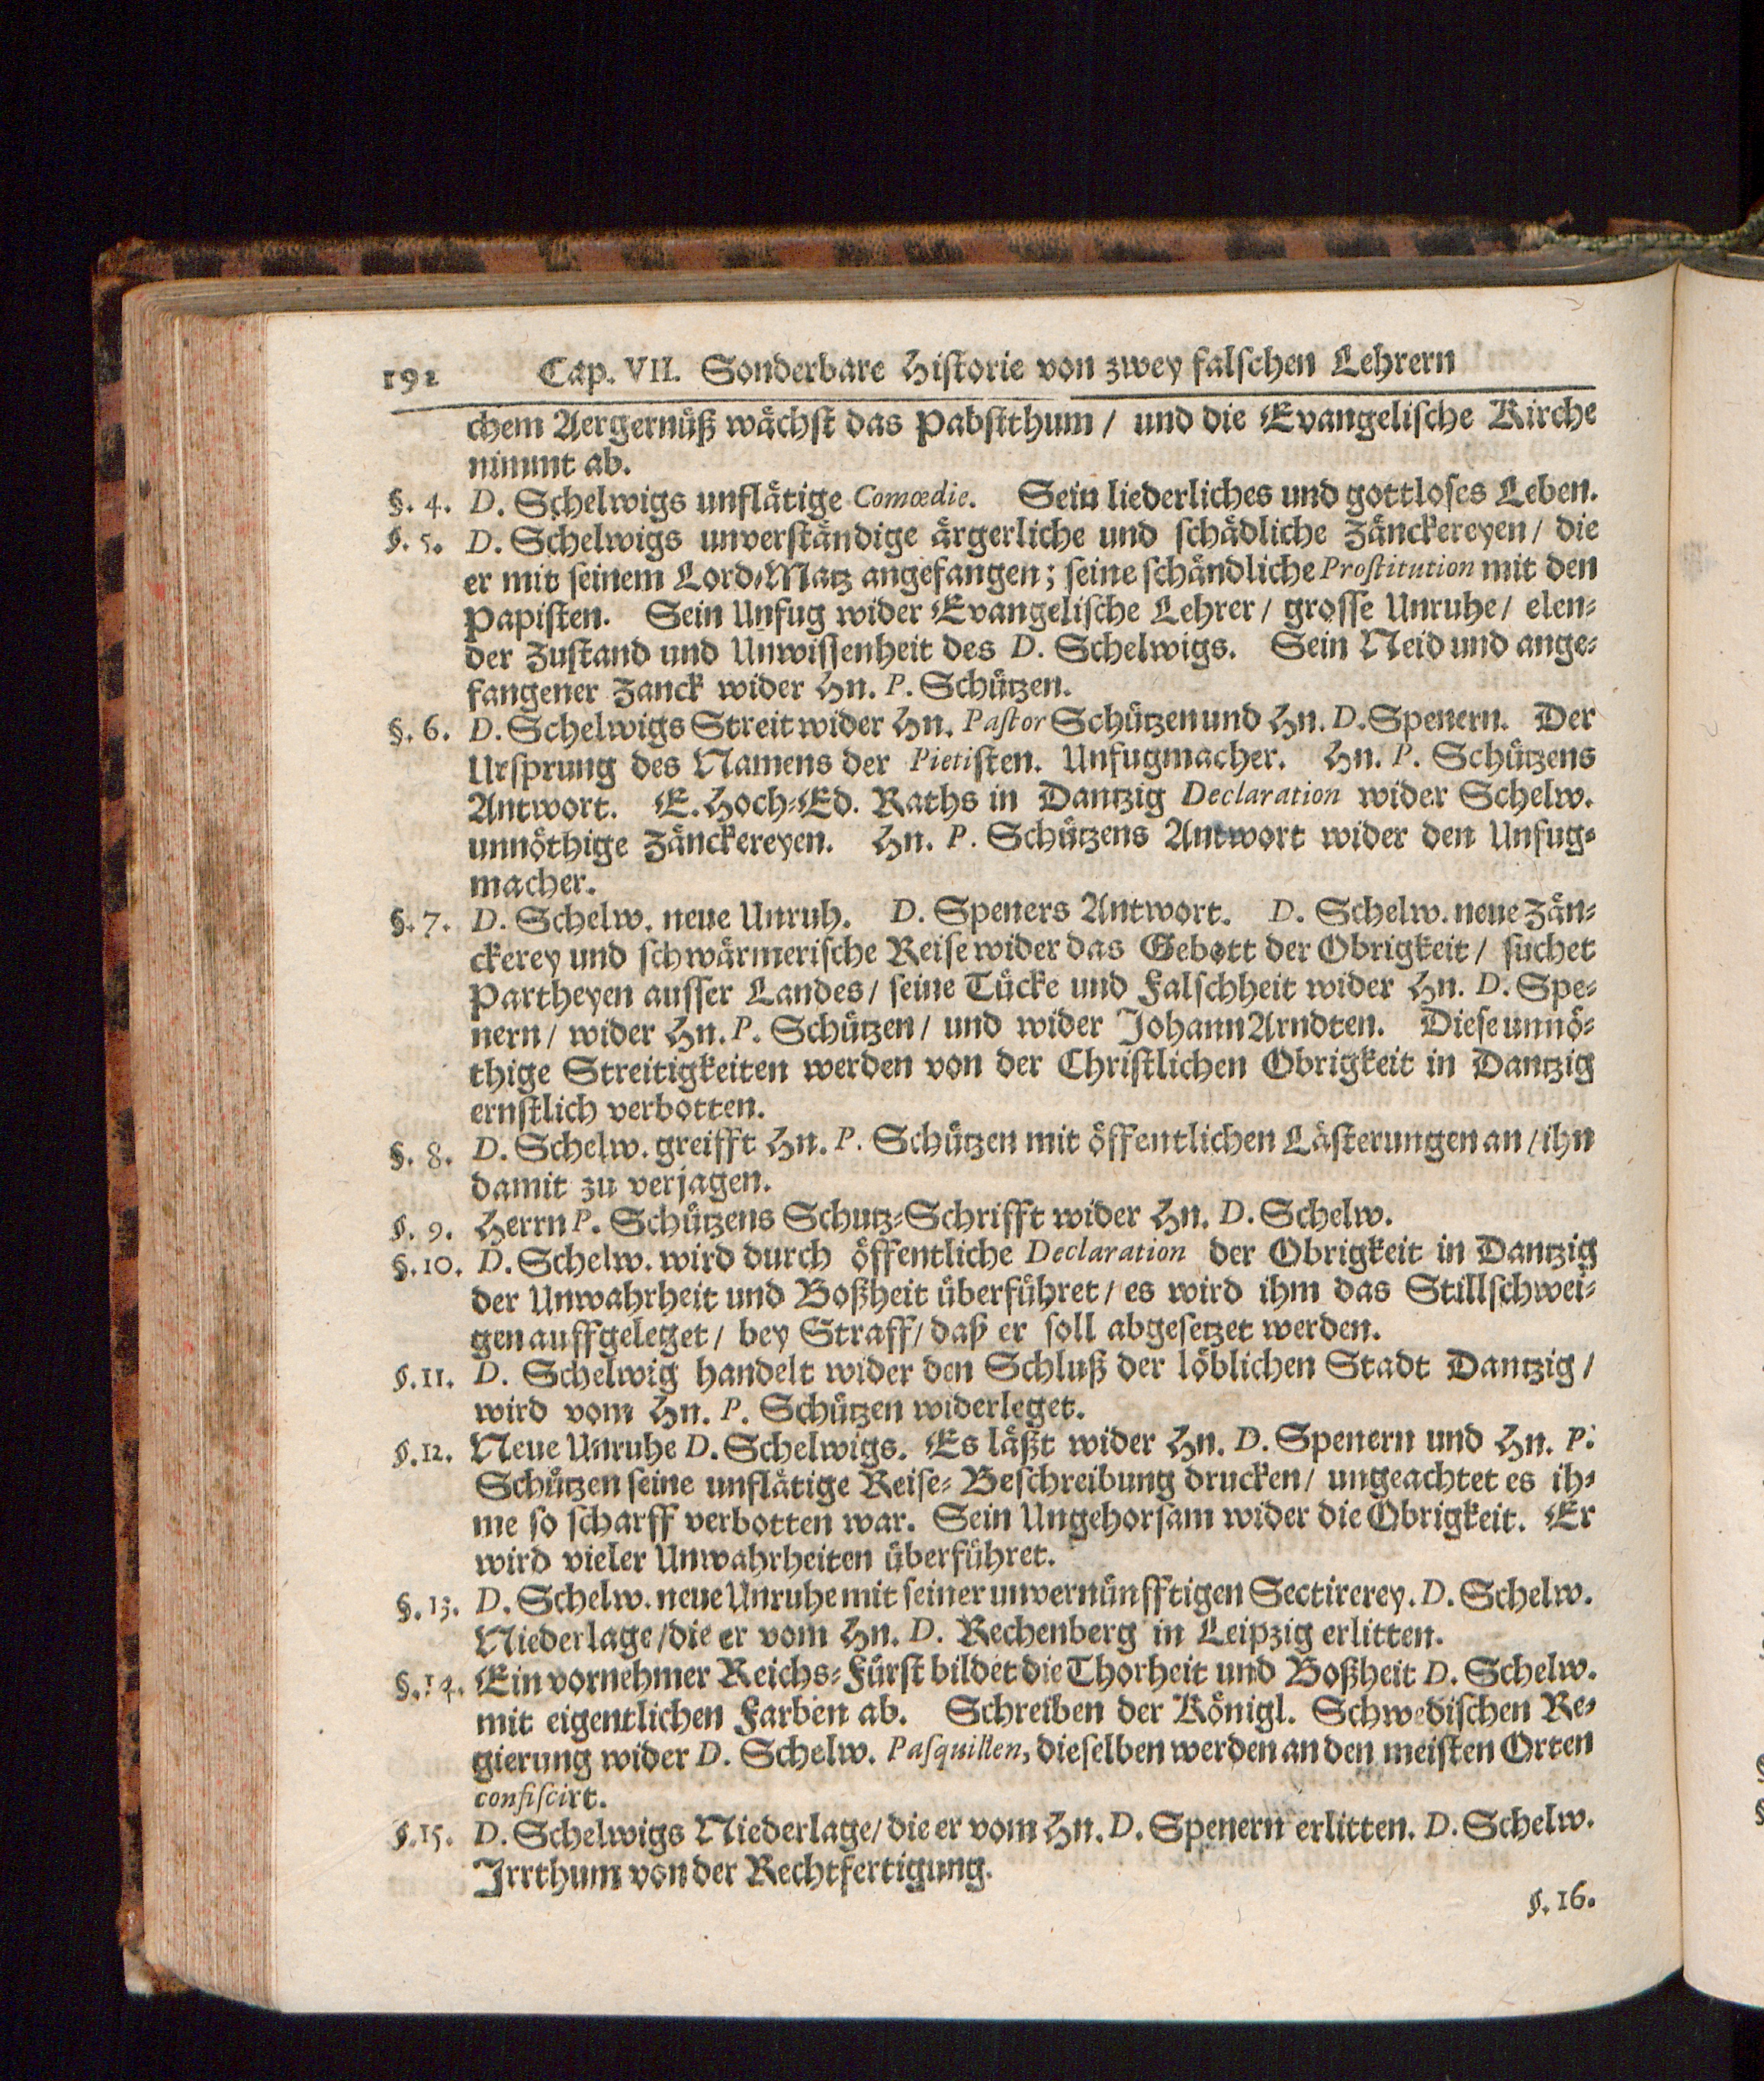 192 Cap. VII. Sonderbare Historie von zwey falschen Lehrern
chem Aergernüß wächst das Pabstthum / und die Evangelische Kirche
nimmt ab.
§. 4. D. Schelwigs unflätige Comœdie. Sein liederliches und gottloses Leben.
§. 5. D. Schelwigs unverständige ärgerliche und schädliche Zänckereyen / die
er mit seinem Lord-Matz angefangen; seine schändliche Prostitution mit den
Papisten. Sein Unfug wider Evangelische Lehrer / grosse Unruhe / elen-
der Zustand und Unwissenheit des D. Schelwigs. Sein Neid und ange-
fangener Zanck wider Hn. P. Schützen.
§. 6. D. Schelwigs Streit wider Hn. Pastor Schützen und Hn. D. Spenern. Der
Ursprung des Namens der Pietisten. Unfugmacher. Hn. P. Schützens
Antwort. E. Hoch-Ed. Raths in Dantzig Declaration wider Schelw.
unnöthige Zänckereyen. Hn. P. Schützens Antwort wider den Unfug-
macher.
§. 7. D. Schelw. neue Unruh. D. Speners Antwort. D. Schelw. neue Zän-
ckerey und schwärmerische Reise wider das Gebott der Obrigkeit / suchet
Partheyen ausser Landes / seine Tücke und Falschheit wider Hn. D. Spe-
nern / wider Hn. P. Schützen / und wider Johann Arndten. Diese unnö-
thige Streitigkeiten werden von der Christlichen Obrigkeit in Dantzig
ernstlich verbotten.
§. 8. D. Schelw. greifft Hn. P. Schützen mit öffentlichen Lästerungen an / ihn
damit zu verjagen.
§. 9. Herrn P. Schützens Schutz-Schrifft wider Hn. D. Schelw.
§. 10. D. Schelw. wird durch öffentliche Declaration der Obrigkeit in Dantzig
der Unwahrheit und Boßheit überführet / es wird ihm das Stillschwei-
gen auffgeleget / bey Straff / daß er soll abgesetzet werden.
§. 11. D. Schelwig handelt wider den Schluß der löblichen Stadt Dantzig /
wird vom Hn. P. Schützen widerleget.
§. 12. Neue Unruhe D. Schelwigs. Es läßt wider Hn. D. Spenern und Hn. P.
Schützen seine unflätige Reise-Beschreibung drucken / ungeachtet es ih-
me so scharff verbotten war. Sein Ungehorsam wider die Obrigkeit. Er
wird vieler Unwahrheiten überführet.
§. 13. D. Schelw. neue Unruhe mit seiner unvernünfftigen Sectirerey. D. Schelw.
Niederlage / die er vom Hn. D. Rechenberg in Leipzig erlitten.
§. 14. Ein vornehmer Reichs-Fürst bildet die Thorheit und Boßheit D. Schelw.
mit eigentlichen Farben ab. Schreiben der Königl. Schwedischen Re-
gierung wider D. Schelw. Pasquillen, dieselben werden an den meisten Orten
confiscirt.
§. 15. D. Schelwigs Niederlage / die er vom Hn. D. Spenern erlitten. D. Schelw.
Irrthum von der Rechtfertigung.
§. 16.